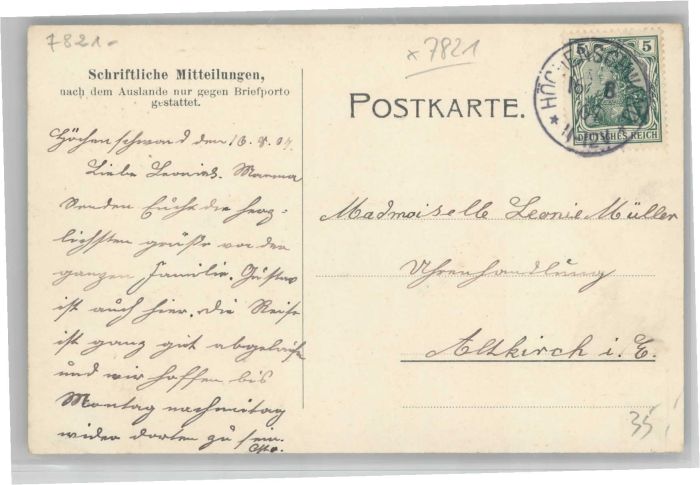 7821-
x 7821
Schriftliche Mitteilungen,
nach dem Auslande nur gegen Briefporto
gestattet.
POSTKARTE.
5 5
DEUTSCHES REICH
HÖCHENSCHWAND
Höchenschwand den 16.8.07.
Liebe Leonie. Mamma
Senden Euch die herz-
lichsten grüße von der
ganzen Familie. Gustav
ist auch hier. die Reise
ist ganz gut abgelaufe
und wir hoffen bis
Montag nachmitag
wider dorten zu sein.
Madmoiselle Leonie Müller
Uhrenhandlung
Altkirch i. E.
35